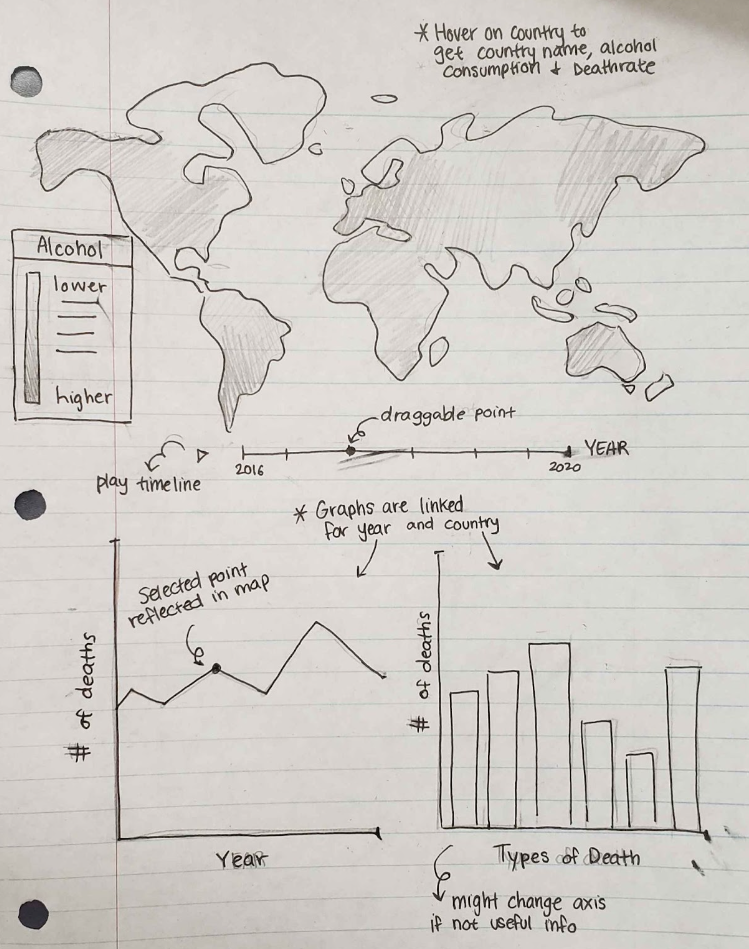 * Hover on Country to
get country name, alcohol
Consumption + Deathrate
Alcohol
lower
higher
draggable point
2016
2020
YEAR
play timeline
* Graphs are linked
for year and country
Selected point
reflected in map
# of deaths
Year
# of deaths
Types of Death
might change axis
if not useful info